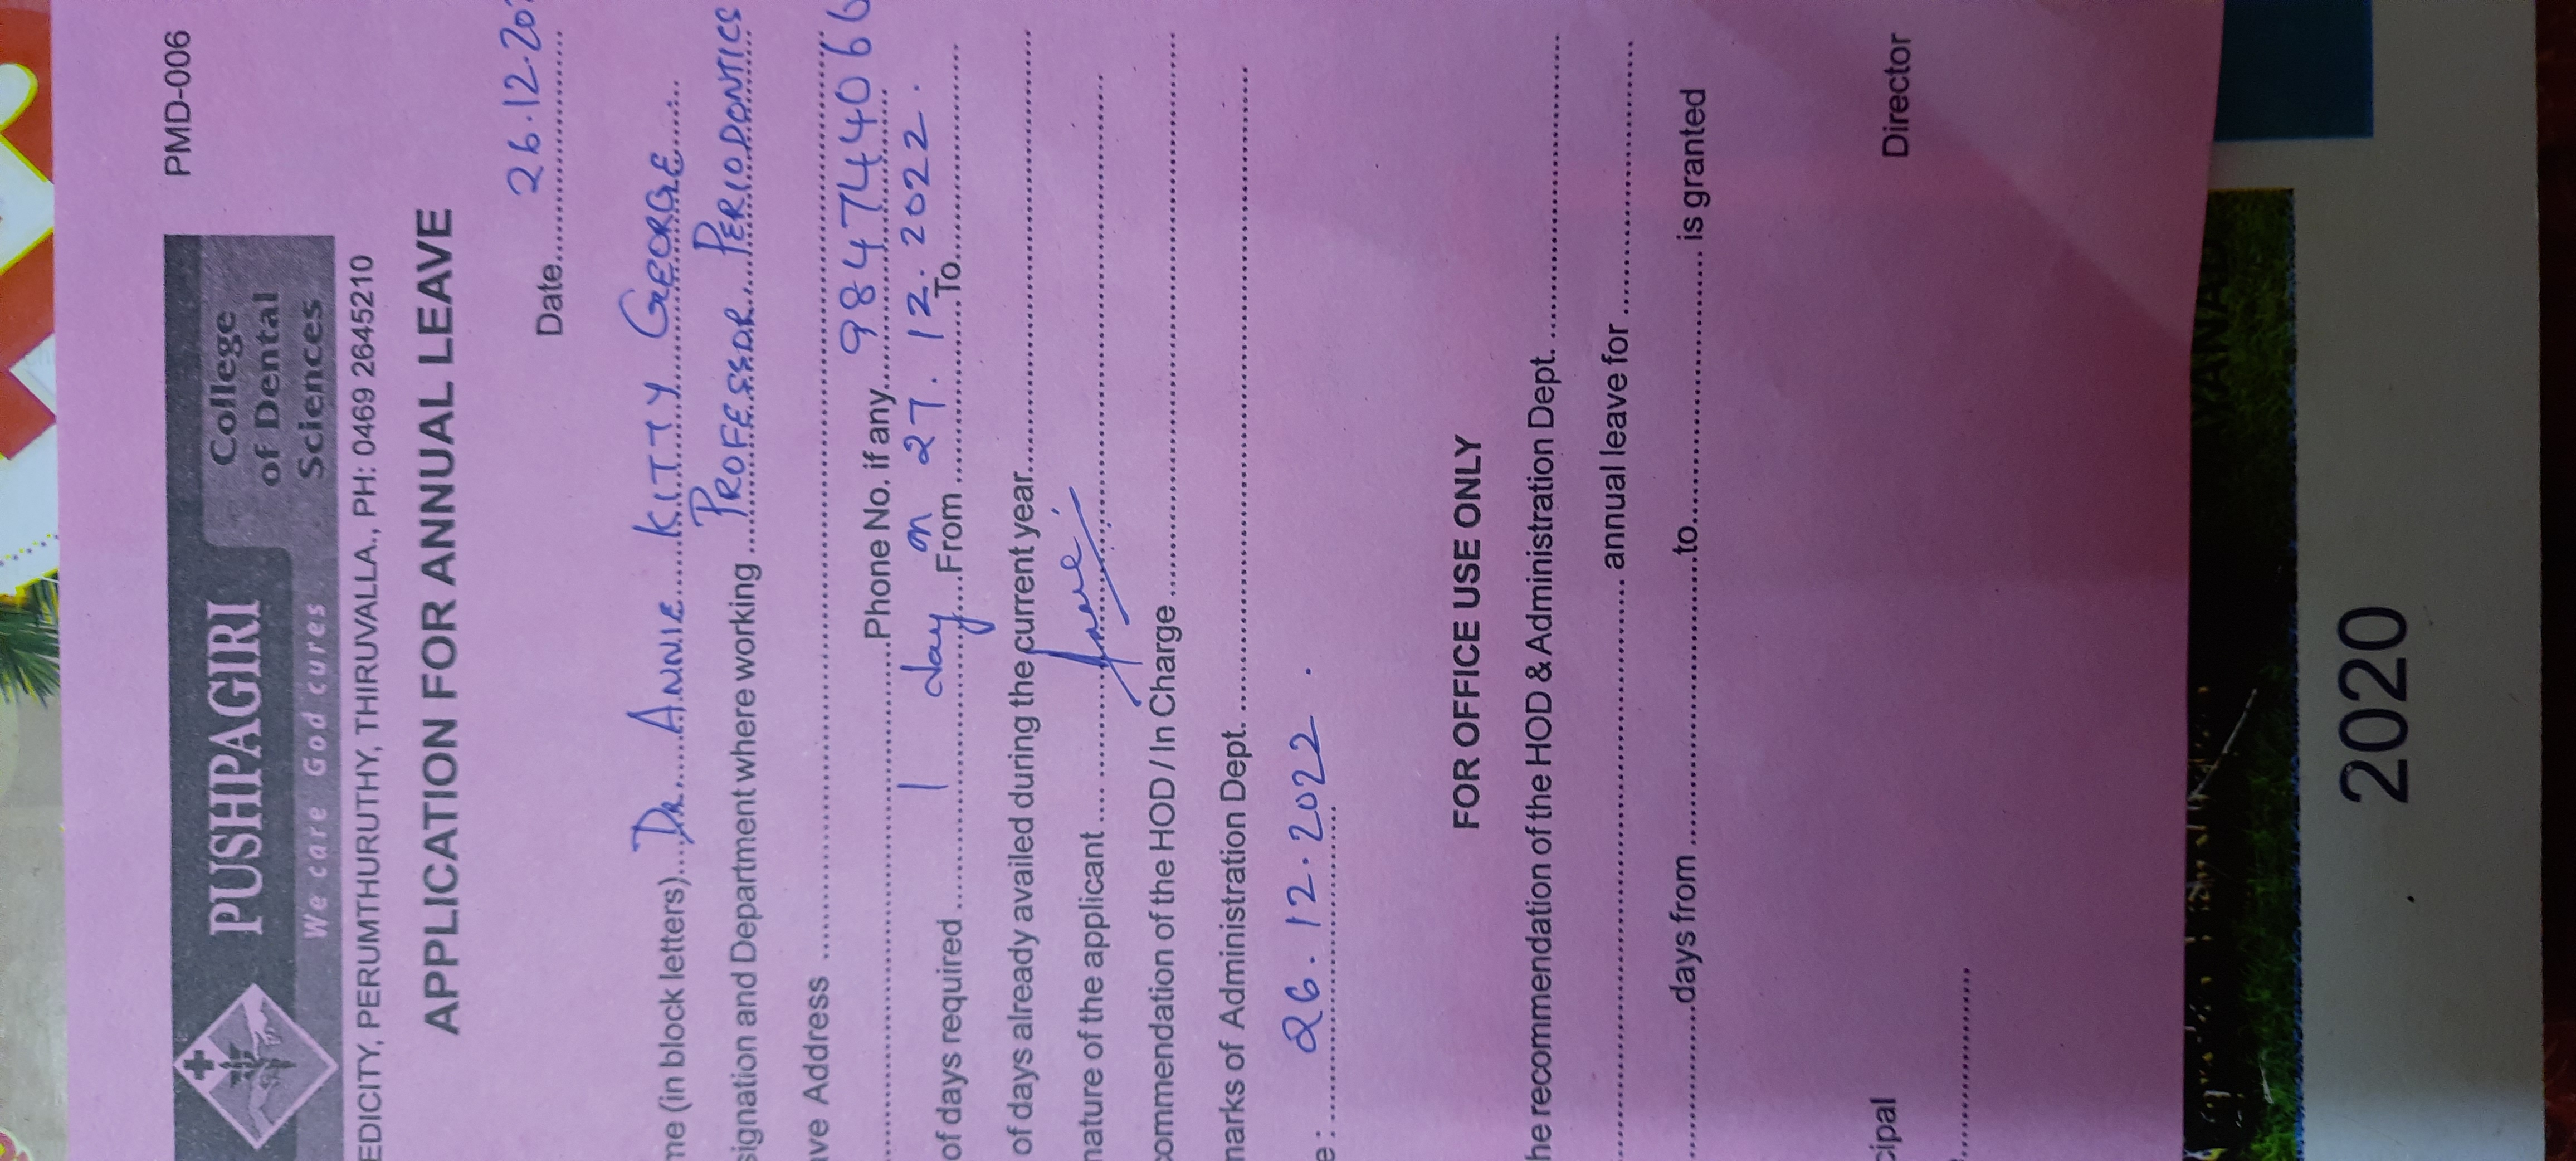 PMD-006
PUSHPAGIRI
We care God cures
College
of Dental
Sciences
EDICITY, PERUMTHURUTHY, THIRUVALLA., PH: 0469 2645210
APPLICATION FOR ANNUAL LEAVE
Date 26.12.202
me (in block letters) DR. ANNIE KITTY GEORGE
signation and Department where working PROFESSOR, PERIODONTICS
ave Address
Phone No. if any 984744066
of days required 1 day From on 27.12.2022. To
of days already availed during the current year
nature of the applicant
commendation of the HOD / In Charge
marks of Administration Dept.
e : 26.12.2022.
FOR OFFICE USE ONLY
he recommendation of the HOD & Administration Dept.
annual leave for
days from to is granted
cipal
Director
2020